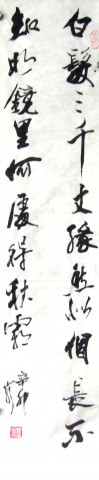 白髮三千丈緣愁似個長不
知明鏡里何處得秋霜
辛卯